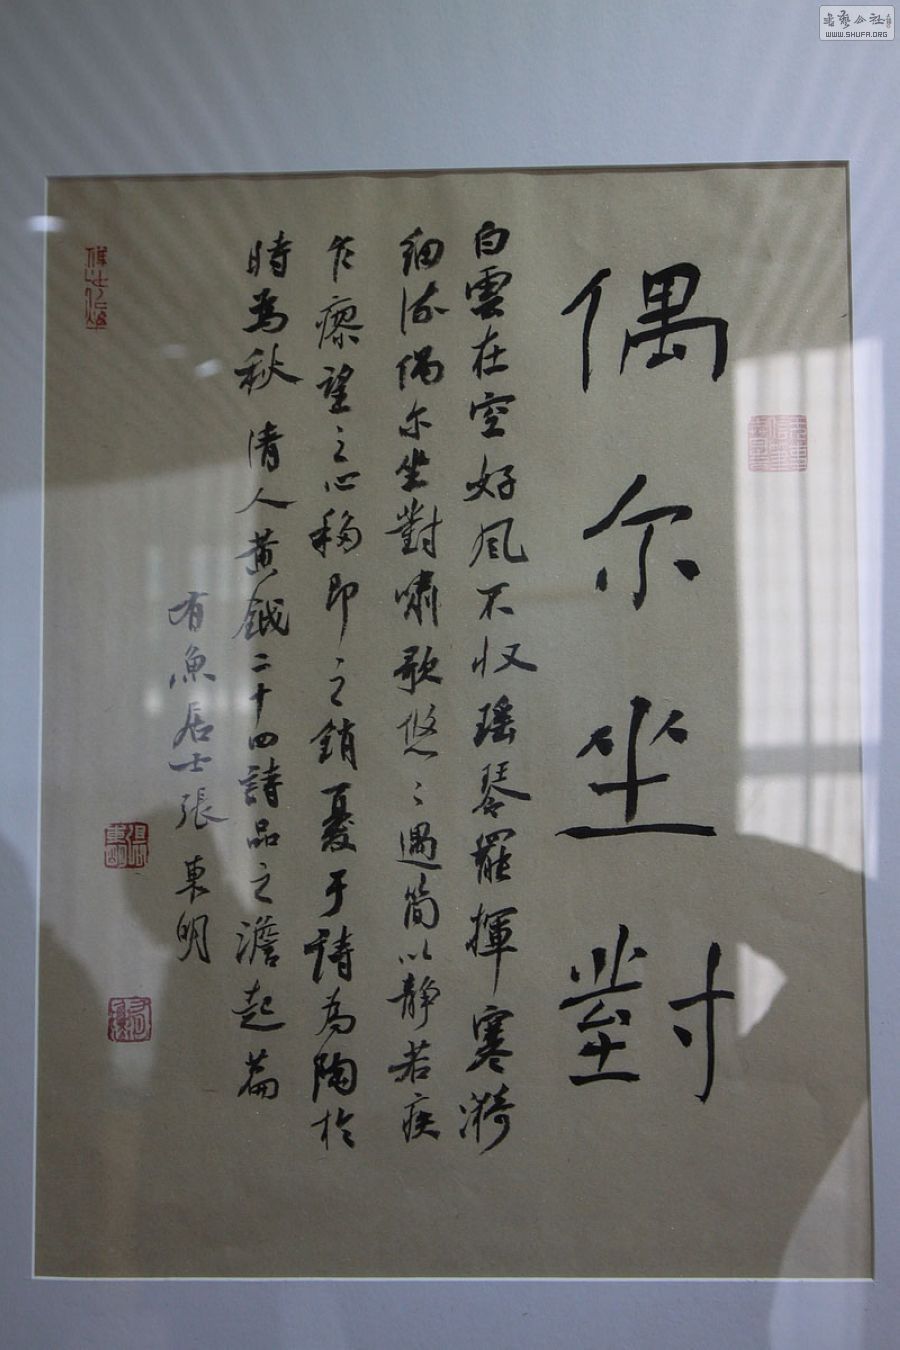 偶尔坐對
白雲在空好风不收瑶琴罷揮寒漪
细流偶尔坐對嘯歌悠〻遇簡以静若疾
乍瘳望之心移即之銷憂于詩为陶於
時为秋 清人黄鉞二十四詩品之澹起篇
有魚居士張東明
張東明
WWW.SHUFA.ORG